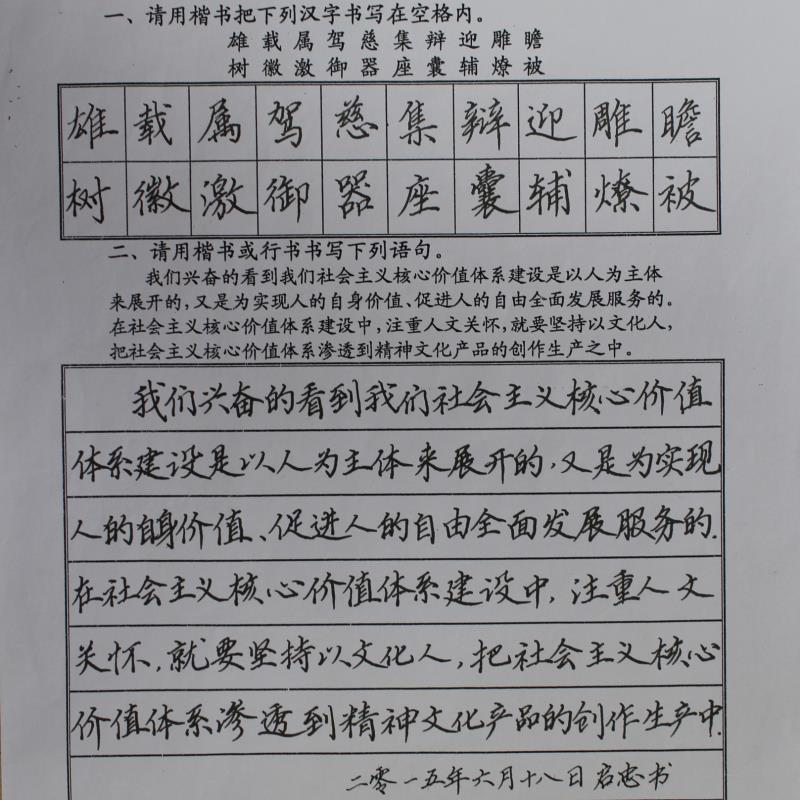 一、请用楷书把下列汉字书写在空格内。
雄载属驾慈集辩迎雕瞻
树徽激御器座囊辅燎被
雄载属驾慈集辩迎雕瞻
树徽激御器座囊辅燎被
二、请用楷书或行书书写下列语句。
我们兴奋的看到我们社会主义核心价值体系建设是以人为主体
来展开的,又是为实现人的自身价值、促进人的自由全面发展服务的。
在社会主义核心价值体系建设中,注重人文关怀,就要坚持以文化人,
把社会主义核心价值体系渗透到精神文化产品的创作生产之中。
我们兴奋的看到我们社会主义核心价值
体系建设是以人为主体来展开的,又是为实现
人的自身价值、促进人的自由全面发展服务的.
在社会主义核心价值体系建设中,注重人文
关怀,就要坚持以文化人,把社会主义核心
价值体系渗透到精神文化产品的创作生产中.
二零一五年六月十八日启忠书